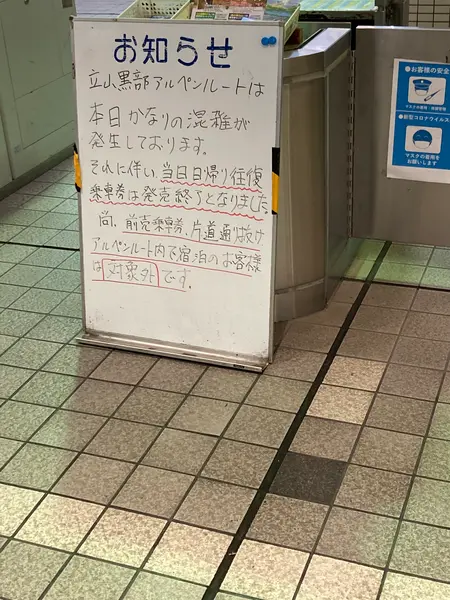 お知らせ
立山黒部アルペンルートは
本日かなりの混雑が
発生しております。
それに伴い、当日日帰り往復
乗車券は発売終了となりました
尚、前売乗車券、片道通り抜け
アルペンルート内で宿泊のお客様
は対象外です。
●お客様の安全
●新型コロナウイルス
マスクの着用を
お願いします